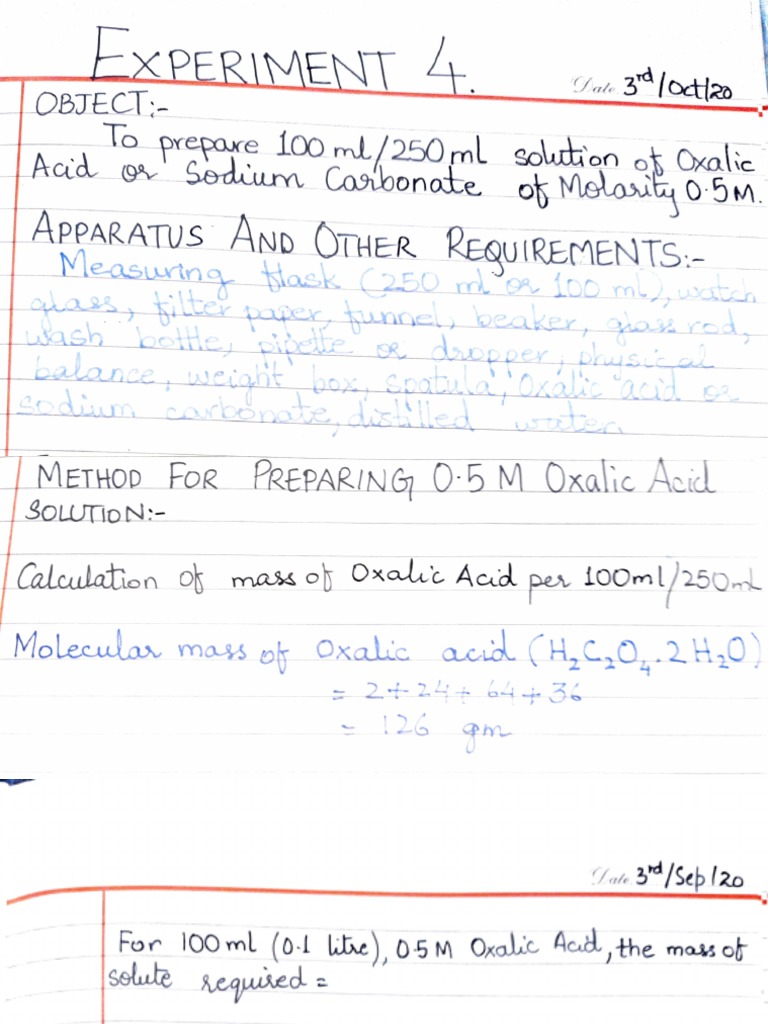 EXPERIMENT 4.
Date 3rd/Oct/20
OBJECT:-
To prepare 100 ml/250 ml solution of Oxalic
Acid or Sodium Carbonate of Molarity 0.5M.
APPARATUS AND OTHER REQUIREMENTS:-
Measuring flask (250 ml or 100 ml), watch
glass, filter paper, funnel, beaker, glass rod,
wash bottle, pipette or dropper, physical
balance, weight box, spatula, Oxalic acid or
sodium carbonate, distilled water.
METHOD FOR PREPARING 0.5 M Oxalic Acid
SOLUTION:-
Calculation of mass of Oxalic Acid per 100ml/250ml
Molecular mass of Oxalic acid (H₂C₂O₄.2H₂O)
= 2+24+64+36
= 126 gm
Date 3rd/Sep/20
For 100ml (0.1 litre), 0.5M Oxalic Acid, the mass of
solute required =